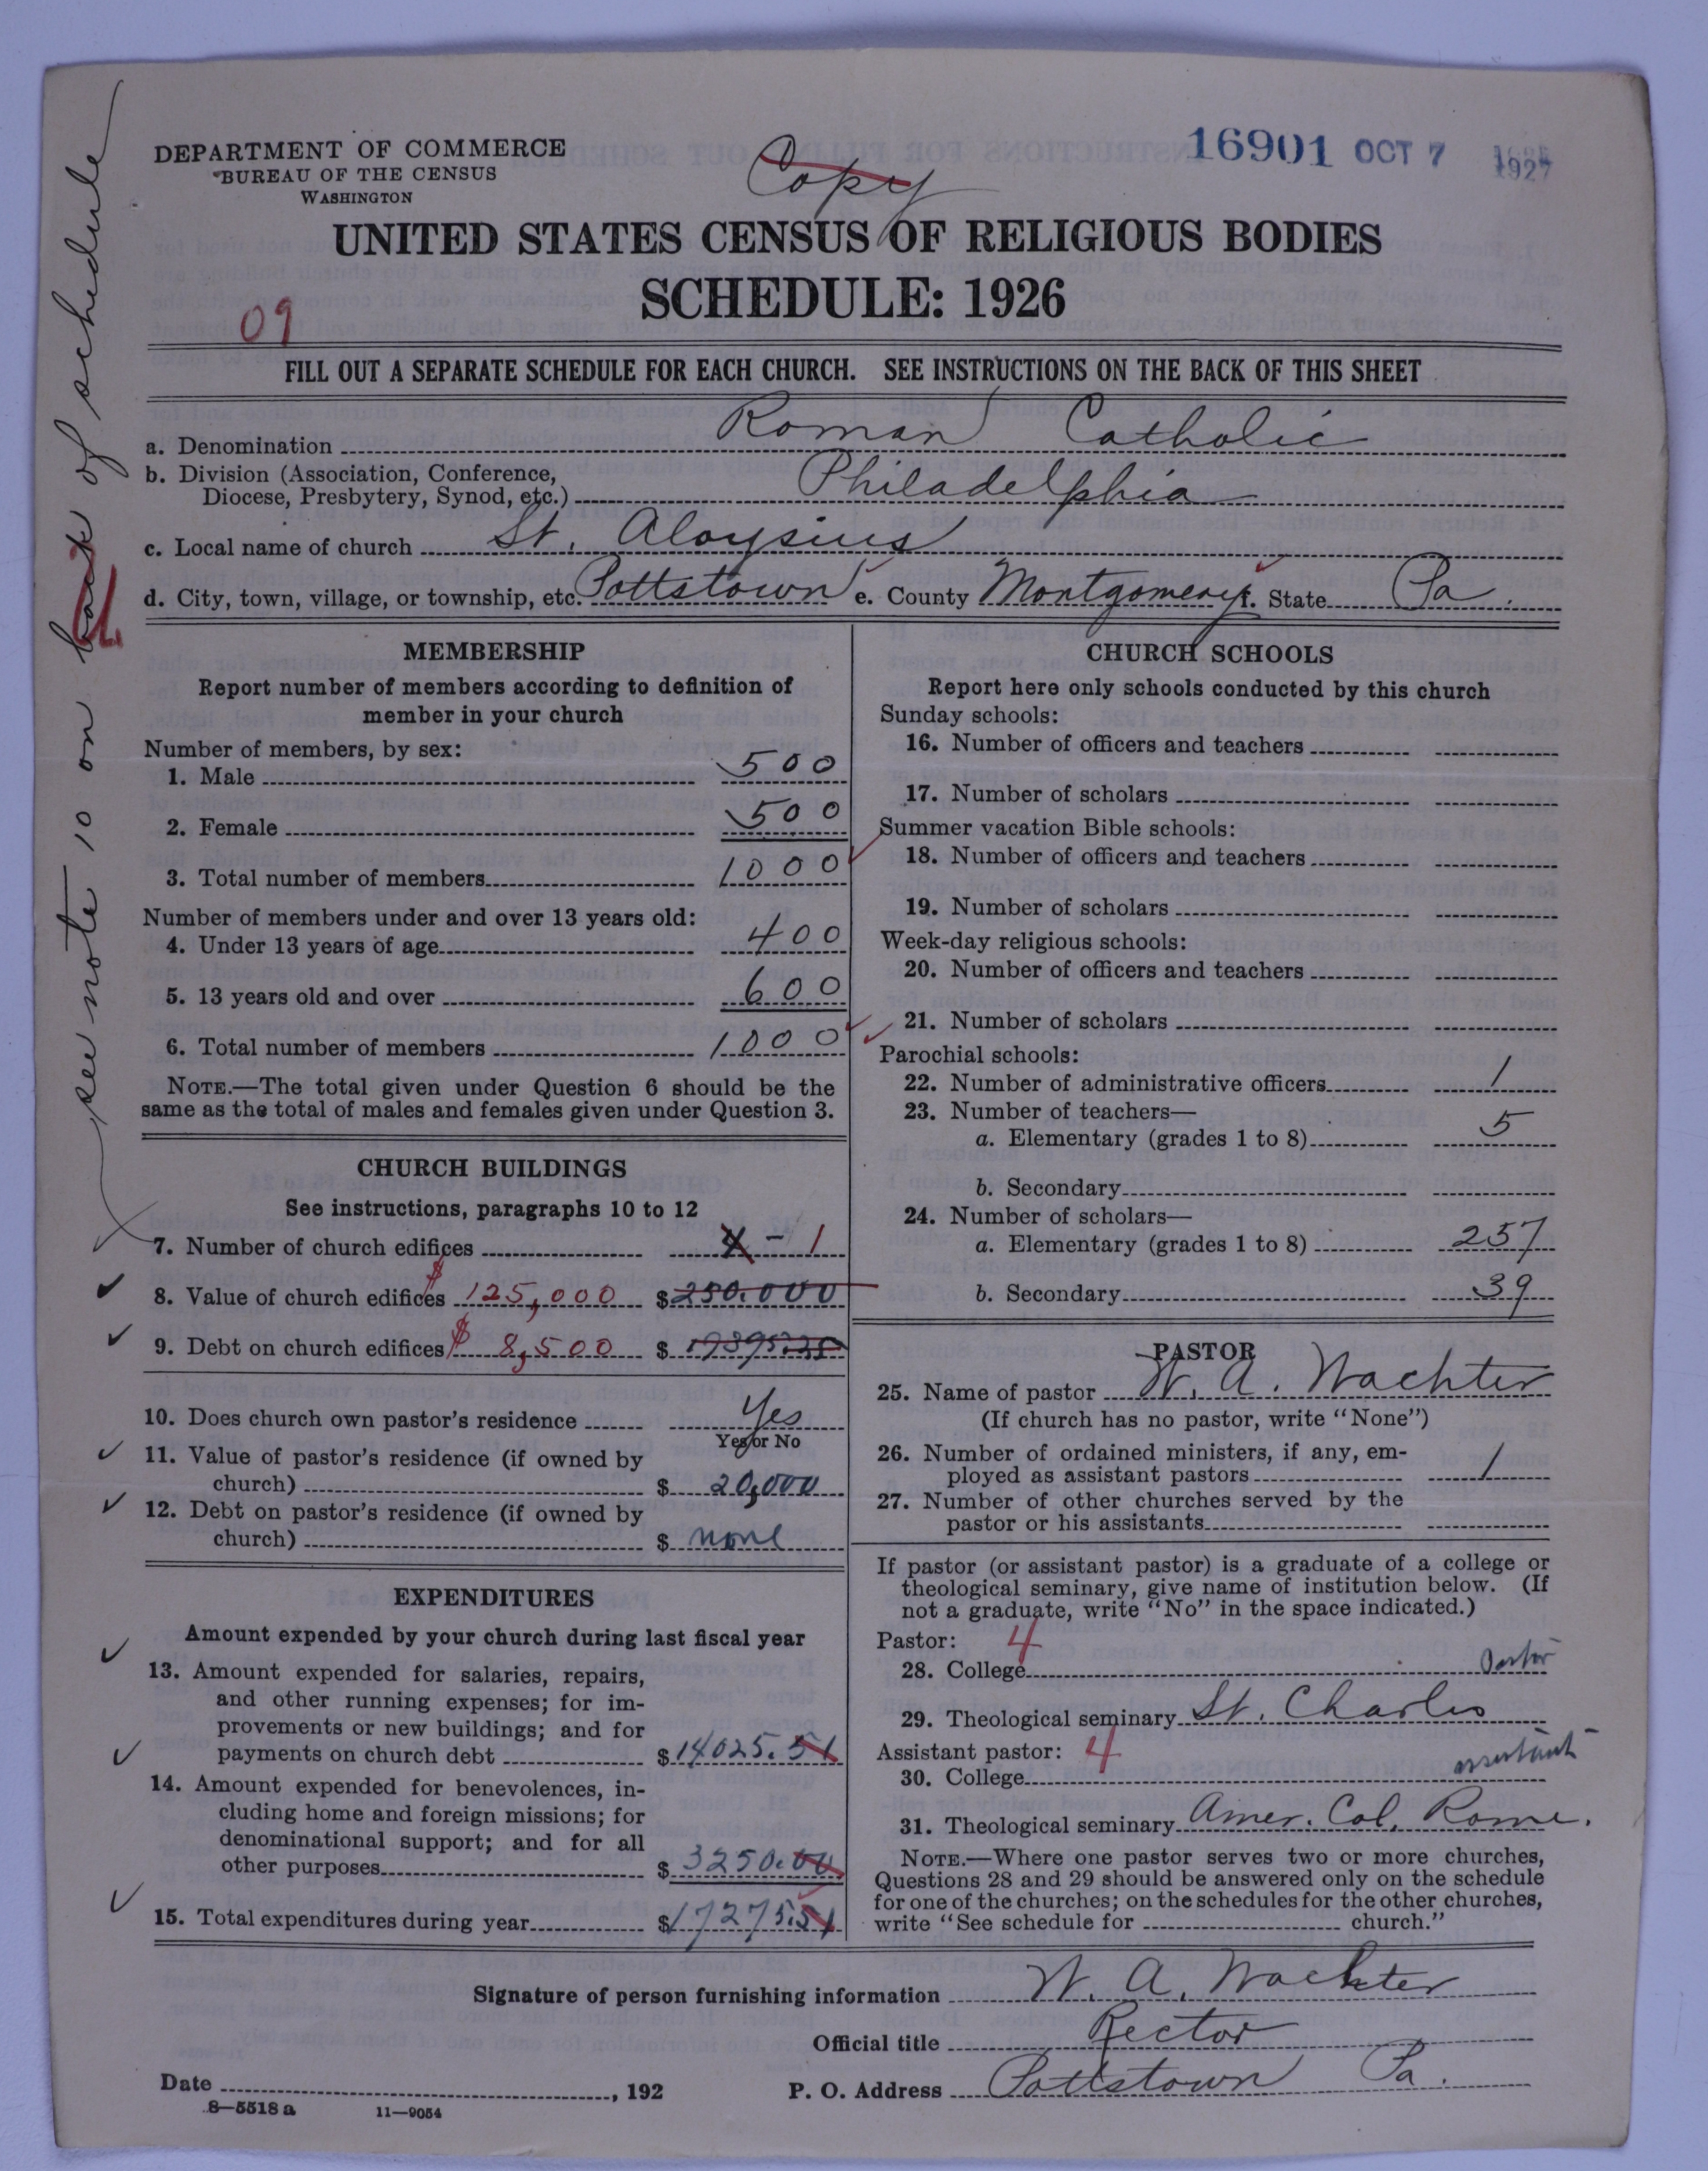 DEPARTMENT OF COMMERCE
BUREAU OF THE CENSUS
WASHINGTON
Copy
16901 OCT 7 1927
UNITED STATES CENSUS OF RELIGIOUS BODIES
SCHEDULE: 1926
09
FILL OUT A SEPARATE SCHEDULE FOR EACH CHURCH. SEE INSTRUCTIONS ON THE BACK OF THIS SHEET
see note 10 on back of schedule
a. Denomination Roman Catholic
b. Division (Association, Conference,
Diocese, Presbytery, Synod, etc.) Philadelphia
c. Local name of church St. Aloysius
d. City, town, village, or township, etc. Pottstown e. County Montgomery f. State Pa.
MEMBERSHIP
Report number of members according to definition of
member in your church
Number of members, by sex:
1. Male 500
2. Female 500
3. Total number of members 1000
Number of members under and over 13 years old:
4. Under 13 years of age 400
5. 13 years old and over 600
6. Total number of members 1000
NOTE.—The total given under Question 6 should be the
same as the total of males and females given under Question 3.
CHURCH BUILDINGS
See instructions, paragraphs 10 to 12
7. Number of church edifices - 1
8. Value of church edifices $125,000 $250.000
9. Debt on church edifices $8,500 $
10. Does church own pastor's residence Yes
Yes or No
11. Value of pastor's residence (if owned by
church) $ 20,000
12. Debt on pastor's residence (if owned by
church) $ none
EXPENDITURES
Amount expended by your church during last fiscal year
13. Amount expended for salaries, repairs,
and other running expenses; for im-
provements or new buildings; and for
payments on church debt $14025.51
14. Amount expended for benevolences, in-
cluding home and foreign missions; for
denominational support; and for all
other purposes $ 3250.00
15. Total expenditures during year $17275.51
CHURCH SCHOOLS
Report here only schools conducted by this church
Sunday schools:
16. Number of officers and teachers
17. Number of scholars
Summer vacation Bible schools:
18. Number of officers and teachers
19. Number of scholars
Week-day religious schools:
20. Number of officers and teachers
21. Number of scholars
Parochial schools:
22. Number of administrative officers 1
23. Number of teachers—
a. Elementary (grades 1 to 8) 5
b. Secondary
24. Number of scholars—
a. Elementary (grades 1 to 8) 257
b. Secondary 39
PASTOR
25. Name of pastor W. A. Wachter
(If church has no pastor, write "None")
26. Number of ordained ministers, if any, em-
ployed as assistant pastors 1
27. Number of other churches served by the
pastor or his assistants
If pastor (or assistant pastor) is a graduate of a college or
theological seminary, give name of institution below. (If
not a graduate, write "No" in the space indicated.)
Pastor: 4
28. College Pastor
29. Theological seminary St. Charles
Assistant pastor: 4
30. College assistant
31. Theological seminary Amer. Col. Rome.
NOTE.—Where one pastor serves two or more churches,
Questions 28 and 29 should be answered only on the schedule
for one of the churches; on the schedules for the other churches,
write "See schedule for church."
Signature of person furnishing information W. A. Wachter
Official title Rector
Date , 192 P. O. Address Pottstown Pa.
8—5518 a 11—9054